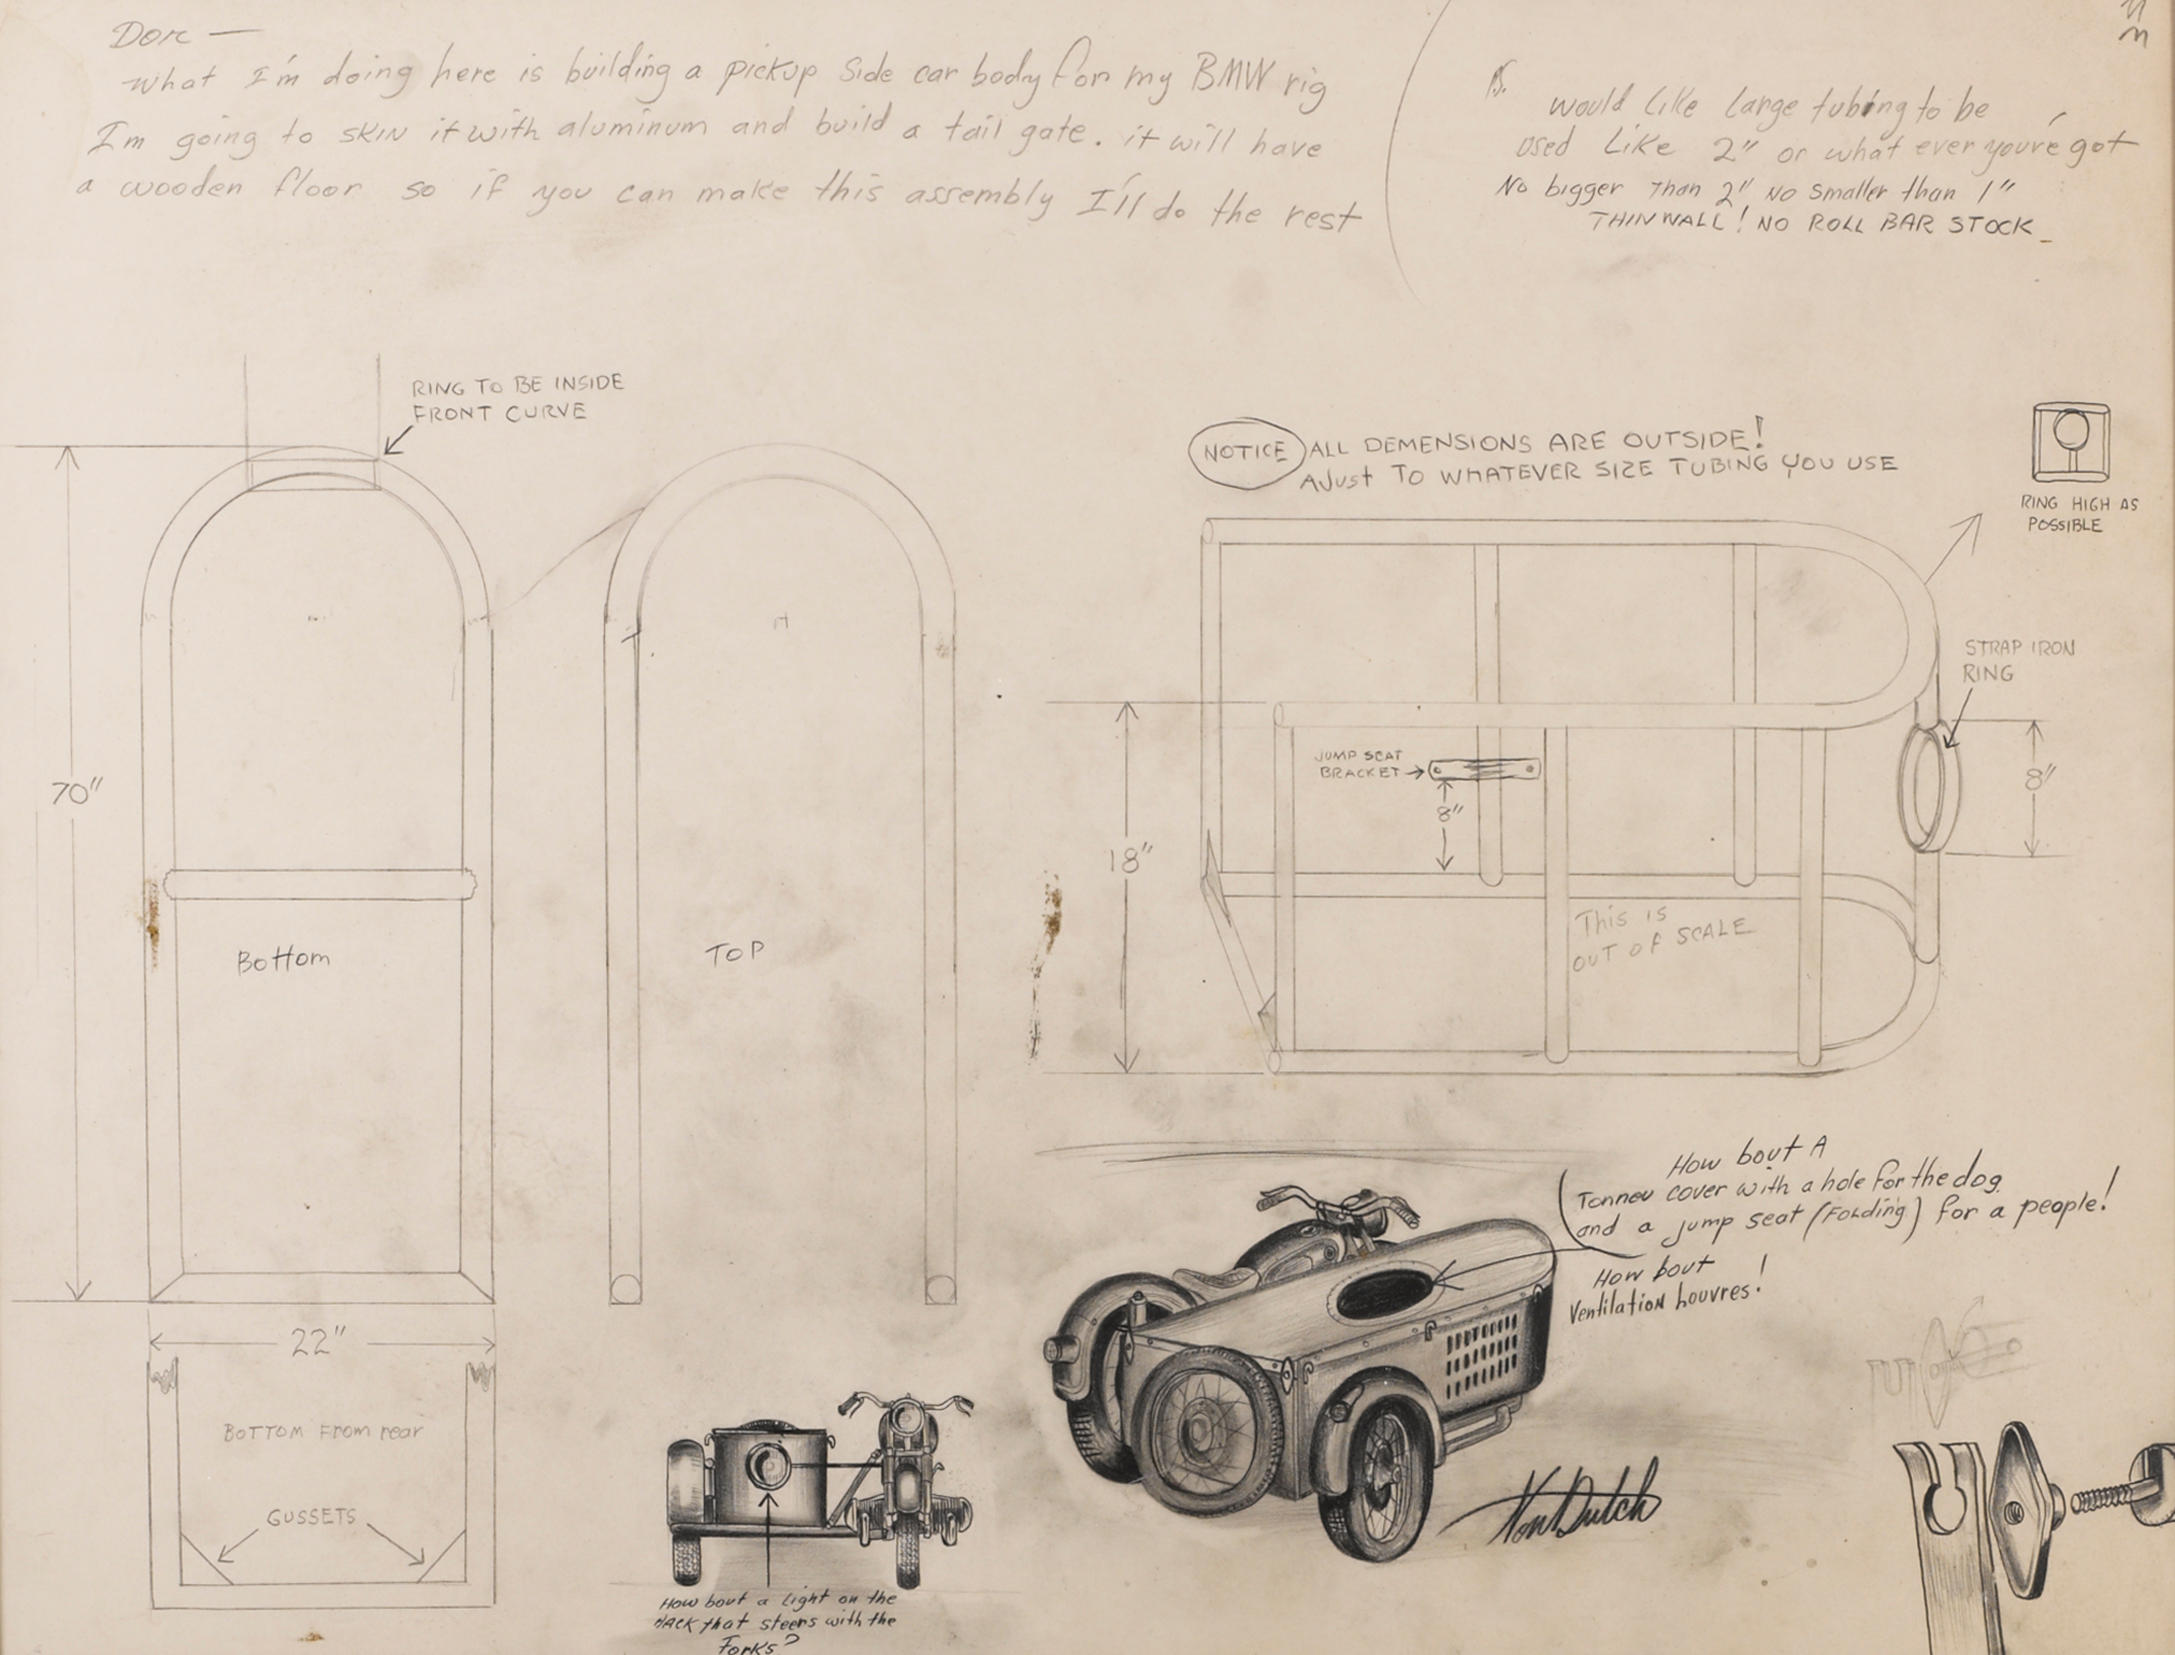 Don —
What I'm doing here is building a pickup side car body for my BMW rig
I'm going to skin it with aluminum and build a tail gate. it will have
a wooden floor so if you can make this assembly I'll do the rest
would like large tubing to be
used like 2" or what ever you've got
No bigger than 2" no smaller than 1"
THINWALL! NO ROLL BAR STOCK
RING TO BE INSIDE
FRONT CURVE
NOTICE ALL DEMENSIONS ARE OUTSIDE!
AJust TO WHATEVER SIZE TUBING YOU USE
RING HIGH AS
POSSIBLE
STRAP IRON
RING
JUMP SEAT
BRACKET
8"
8"
70"
18"
This is
OUT OF SCALE
Bottom
TOP
22"
BOTTOM From rear
GUSSETS
How bout A
Tonneu cover with a hole for the dog
and a jump seat (Folding) for a people!
How bout
Ventilation Louvres!
Von Dutch
How bout a light on the
that steers with the
Forks?